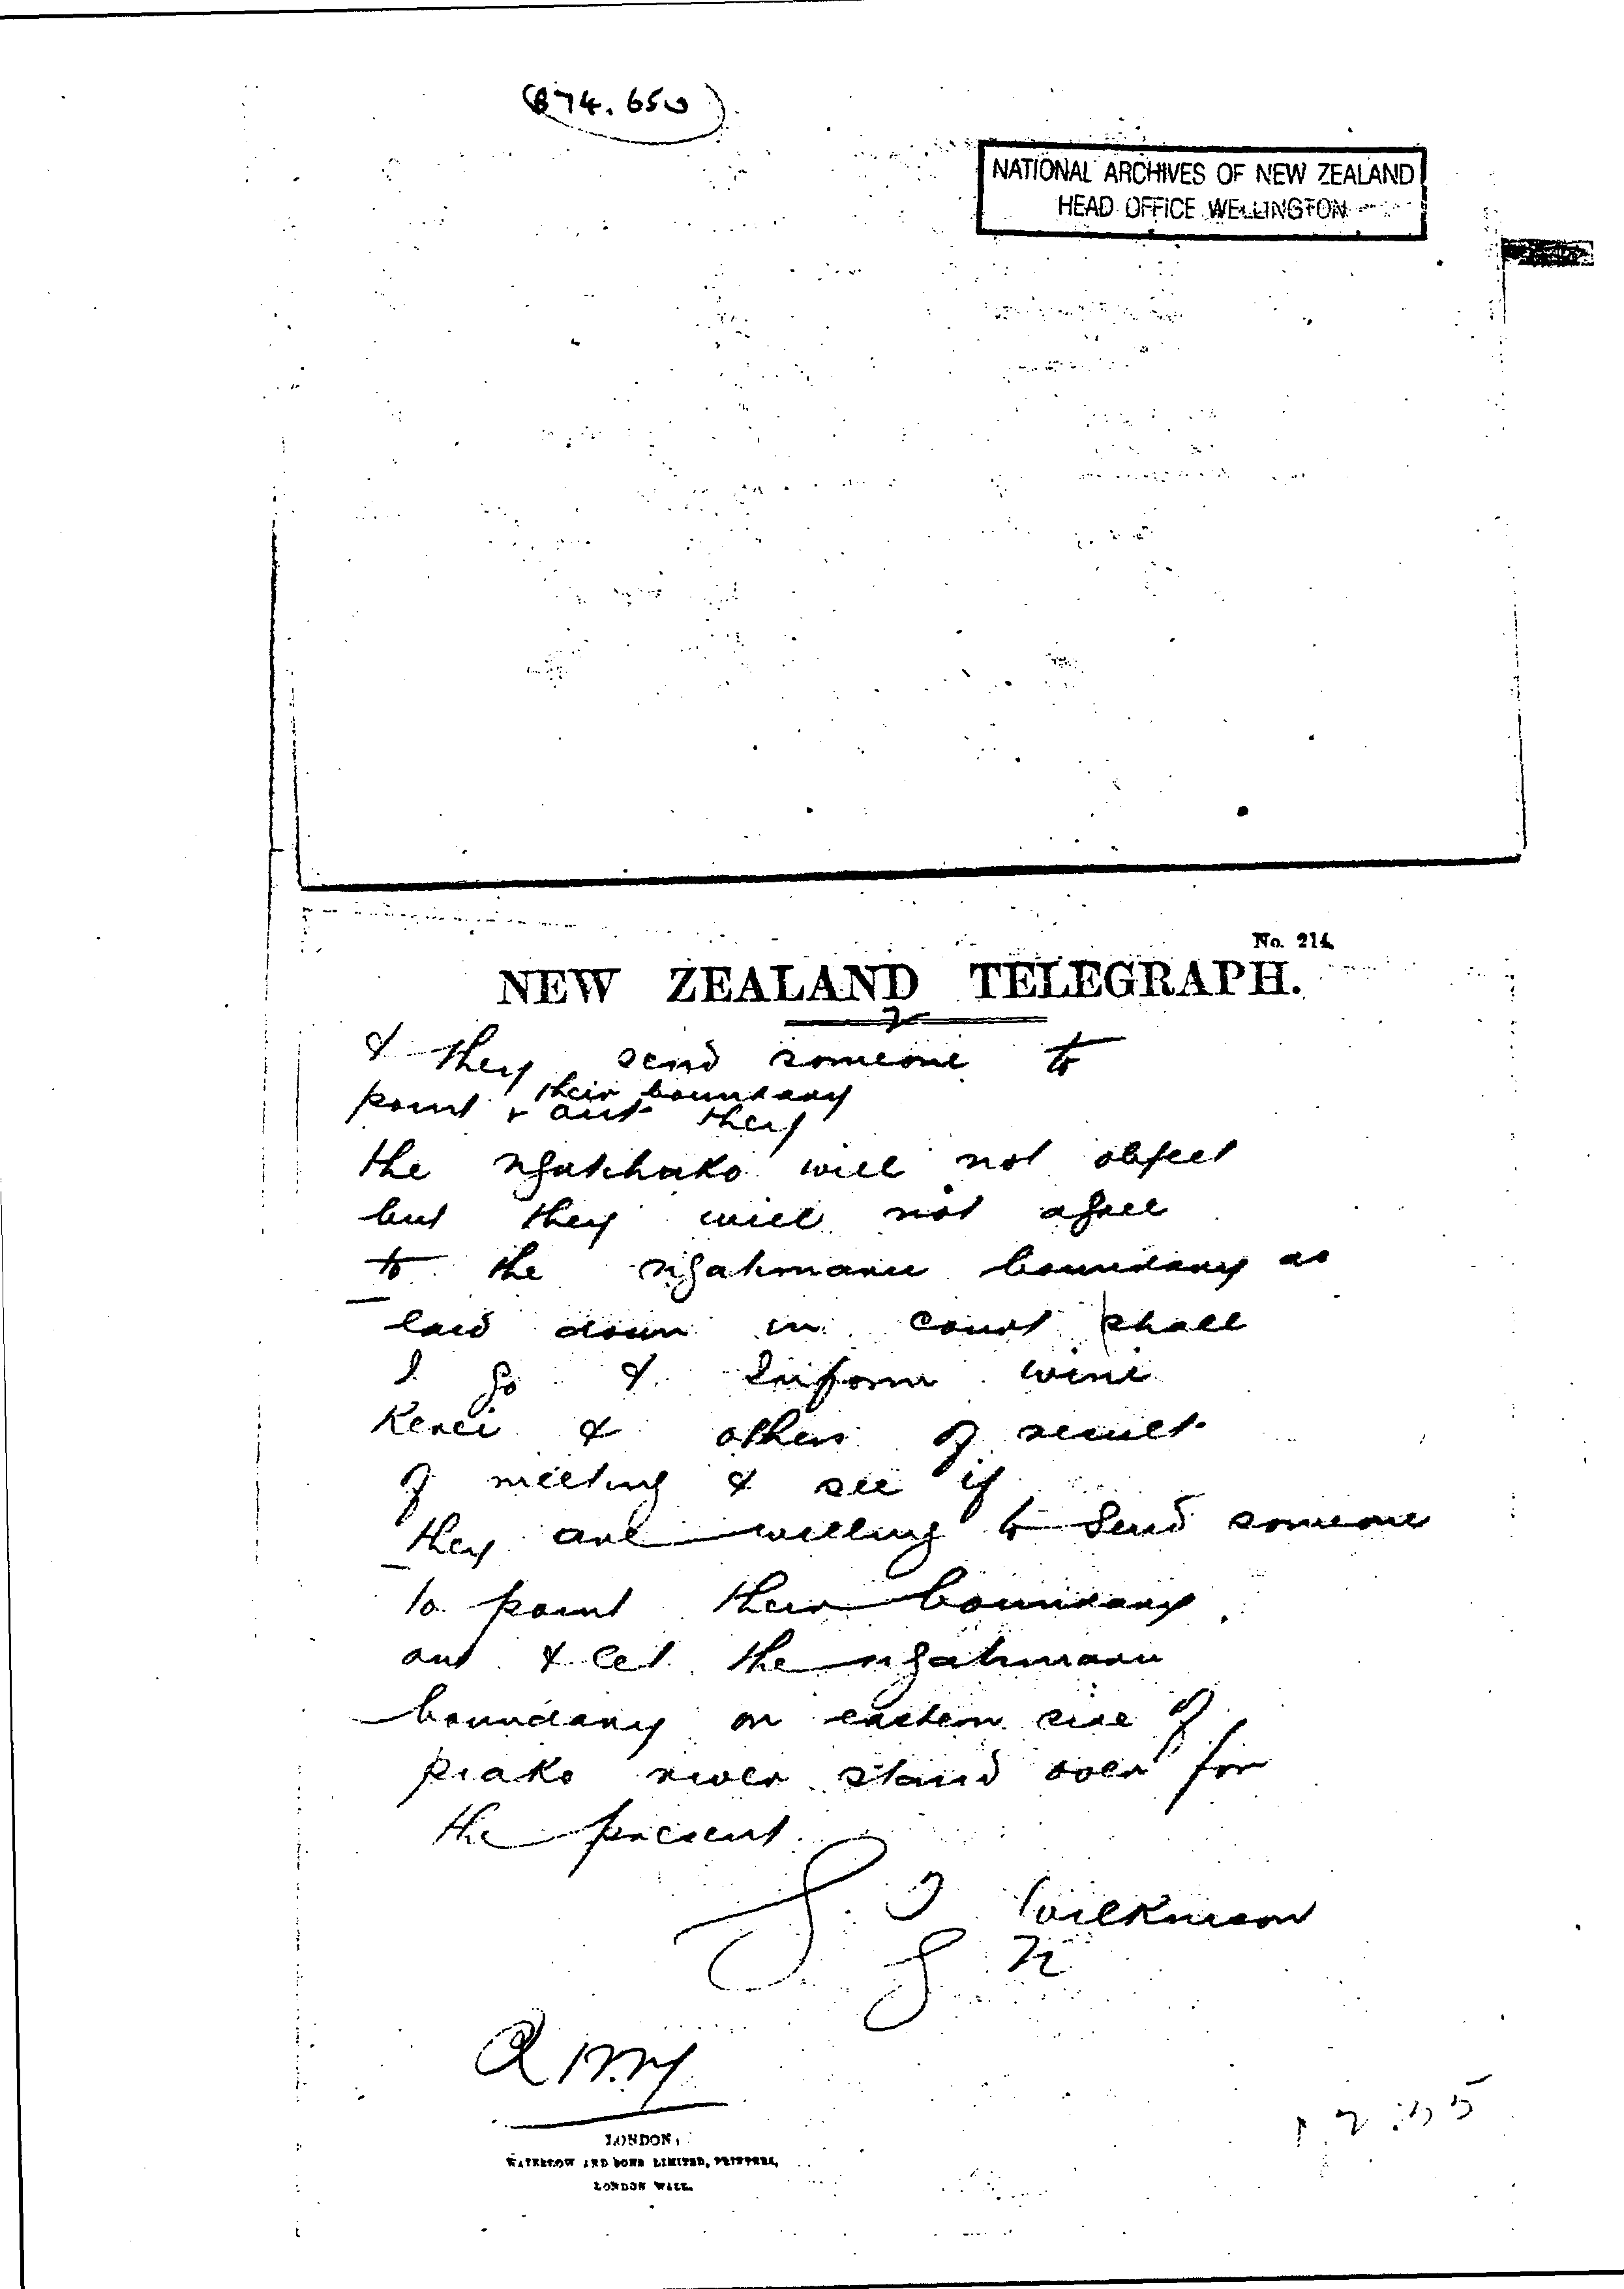 (874.650)
NATIONAL ARCHIVES OF NEW ZEALAND
HEAD OFFICE WELLINGTON
No. 214.
NEW ZEALAND TELEGRAPH.
2
& they send someone to
their boundary
point & out they
the ngatihako will not object
but they will not agree
to the ngatimaru boundary as
laid down in court shall
I go & Inform wini
Kerei & others of result
of meeting & see if
they are willing to Send someone
to point their boundary
out & let the ngatimaru
boundary on eastern side of
piako river stand over for
the present
G. T Wilkinson
LONDON:
WATERLOW AND SONS LIMITED, PRINTERS,
LONDON WALL.